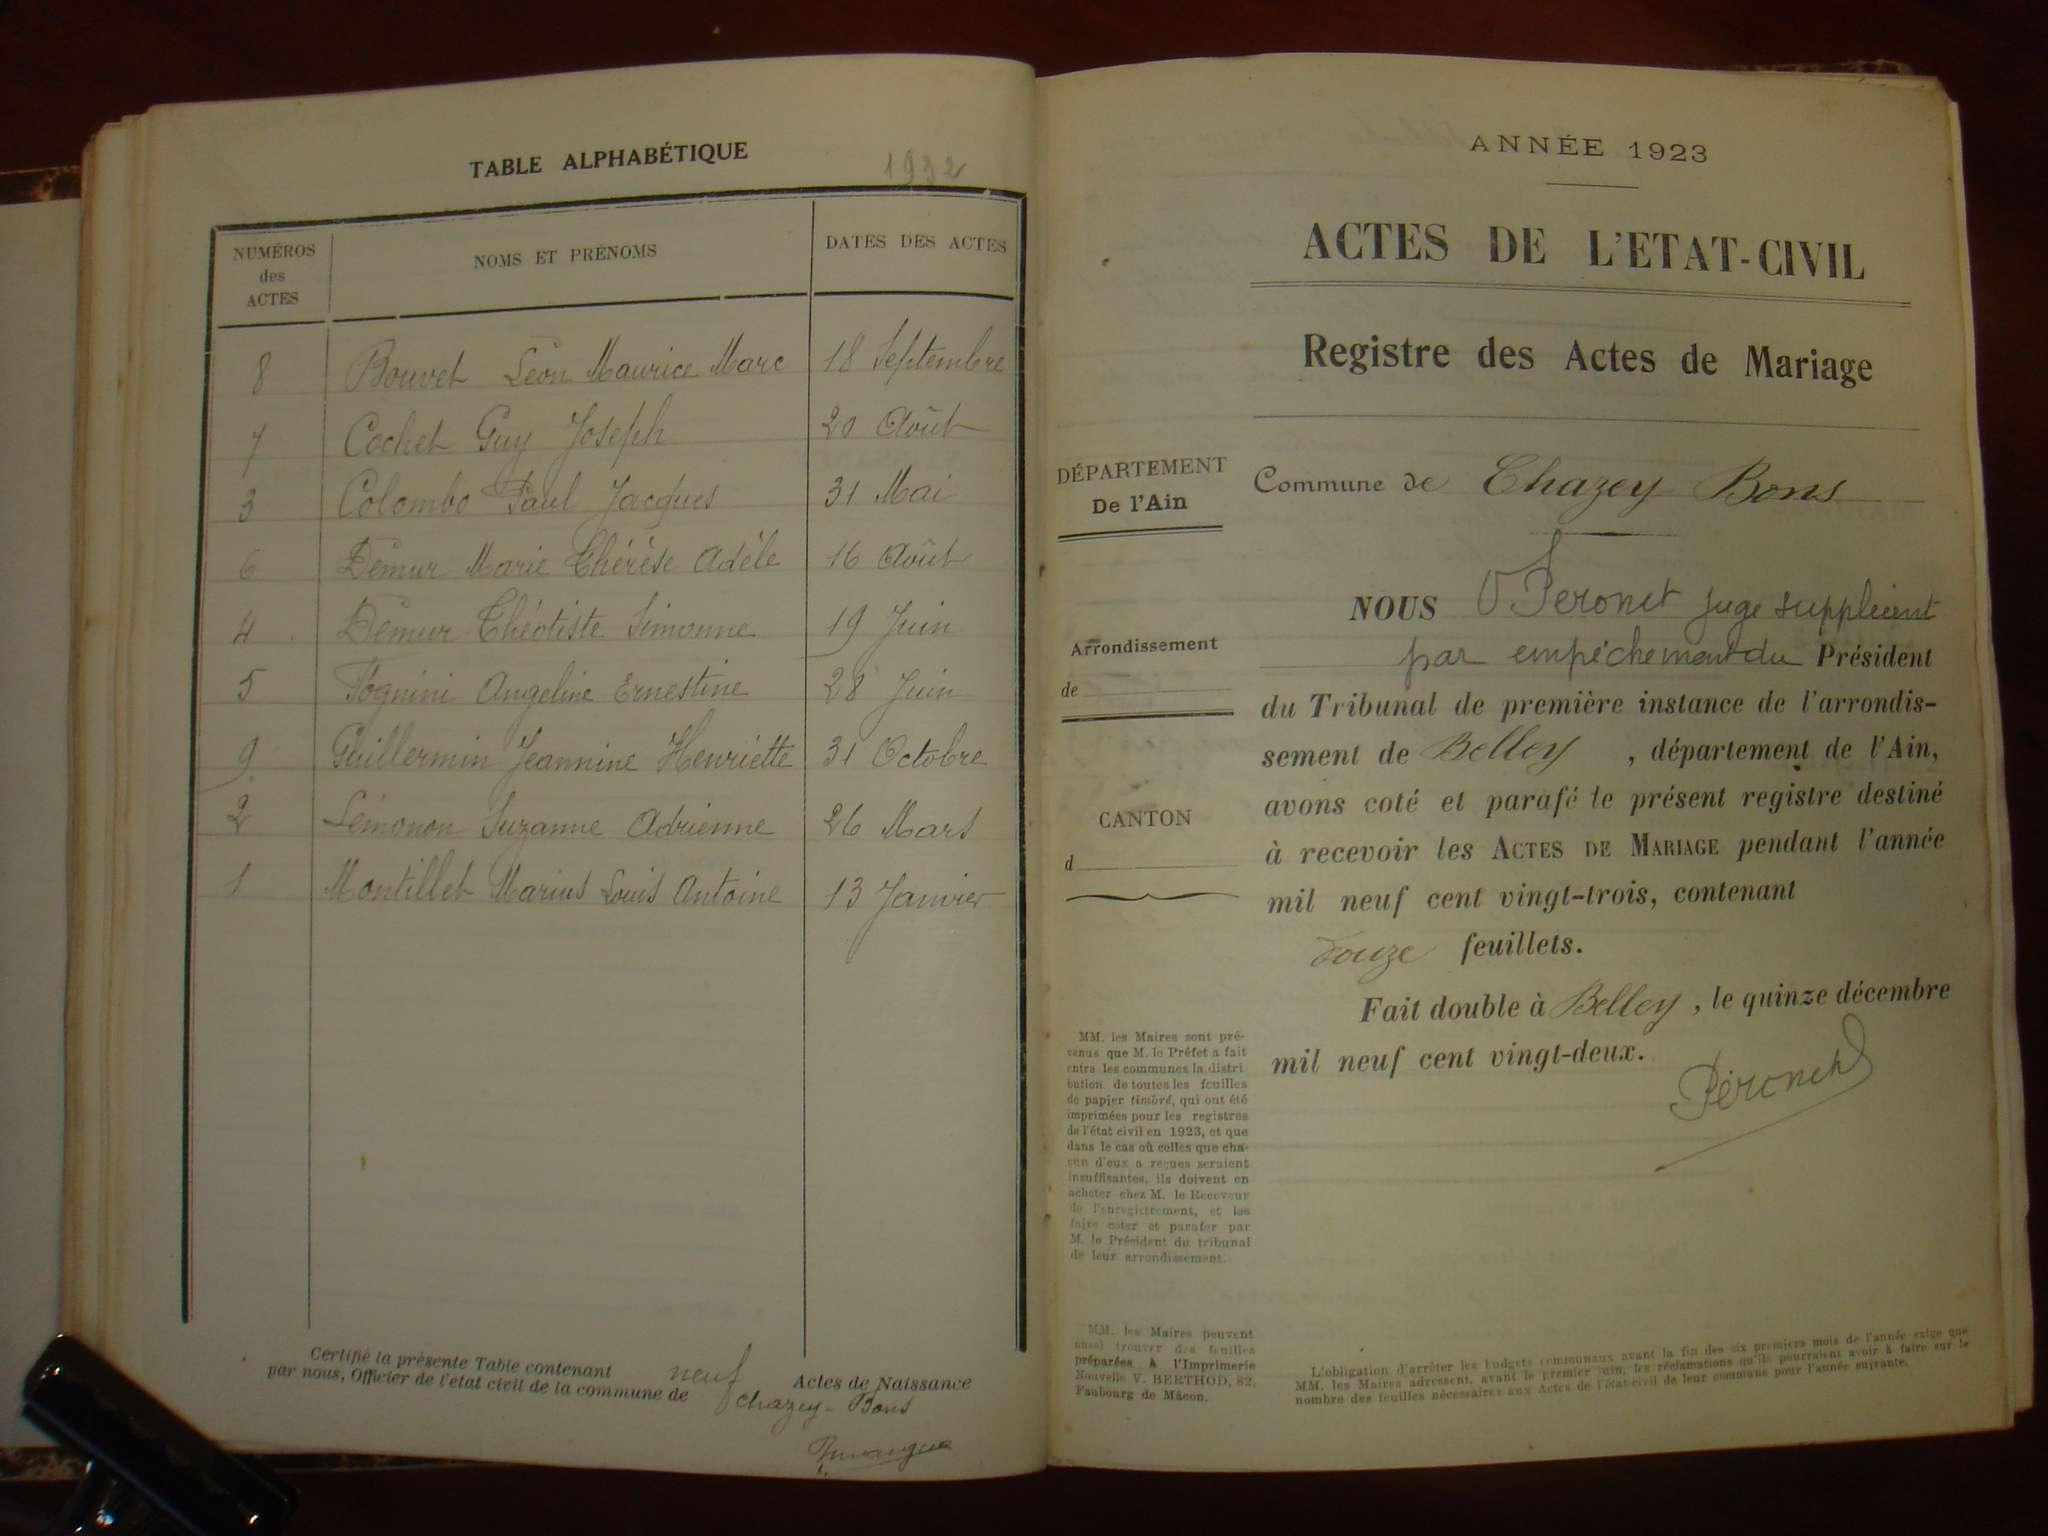 TABLE ALPHABÉTIQUE 1932
NUMÉROS des ACTES NOMS ET PRÉNOMS DATES DES ACTES
8 Bouvet Léon Maurice Marc 18 Septembre
7 Cochet Guy Joseph 20 Août
3 Colombo Paul Jacques 31 Mai
6 Démur Marie Thérèse Adèle 16 Août
4 Démur Théotiste Simonne 19 Juin
5 Fognini Angeline Ernestine 28 Juin
9 Guillermin Jeannine Henriette 31 Octobre
2 Lémonon Suzanne Adrienne 26 Mars
1 Montillet Marius Louis Antoine 13 Janvier
Certifié la présente Table contenant neuf Actes de Naissance
par nous, Officier de l'état civil de la commune de Chazey-Bons
ANNÉE 1923
ACTES DE L'ETAT-CIVIL
Registre des Actes de Mariage
DÉPARTEMENT
De l'Ain
Arrondissement
de
CANTON
d
Commune de Chazey Bons
NOUS Peronet juge suppléent
par empêchement du Président
du Tribunal de première instance de l'arrondis-
sement de Belley, département de l'Ain,
avons coté et parafé le présent registre destiné
à recevoir les ACTES DE MARIAGE pendant l'année
mil neuf cent vingt-trois, contenant
douze feuillets.
Fait double à Belley, le quinze décembre
mil neuf cent vingt-deux.
Péronet
MM. les Maires sont pré-
venus que M. le Préfet a fait
entre les communes la distri
bution de toutes les feuilles
de papier timbré, qui ont été
imprimées pour les registres
de l'état civil en 1923, et que
dans le cas où celles que cha-
cun d'eux a reçues seraient
insuffisantes, ils doivent en
acheter chez M. le Receveur
de l'enregistrement, et les
faire coter et parafer par
M. le Président du tribunal
de leur arrondissement.
MM. les Maires peuvent
aussi trouver des feuilles
préparées à l'Imprimerie
Nouvelle V. BERTHOD, 82,
Faubourg de Mâcon.
L'obligation d'arrêter les budgets communaux avant la fin des six premiers mois de l'année exige que
MM. les Maires adressent, avant le premier juin, les réclamations qu'ils pourraient avoir à faire sur le
nombre des feuilles nécessaires aux Actes de l'état-civil de leur commune pour l'année suivante.